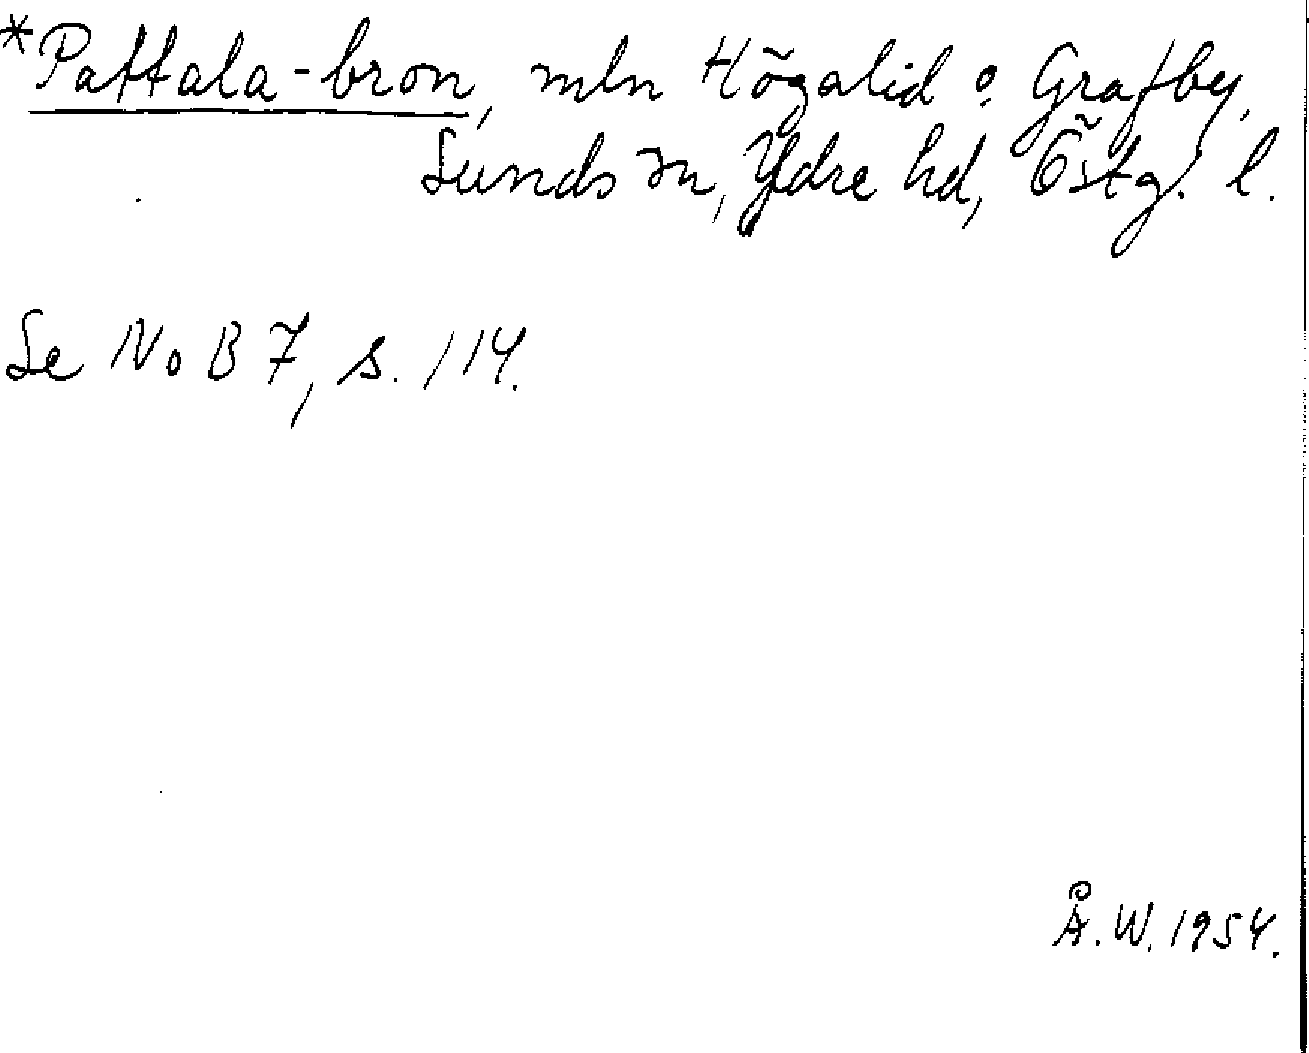 *Pattala-bron, mln Högalid o. Grafby,
Sunds sn, Ydre hd, Östg. l.
Se NoB 7, s. 114.
Å.W. 1954.